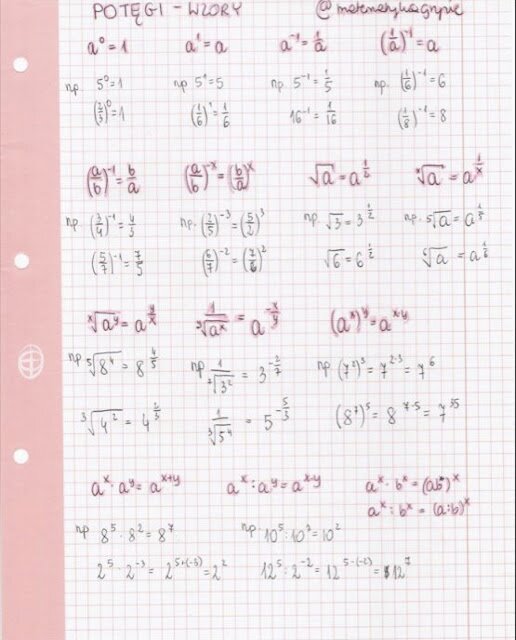 POTĘGI - WZORY @matematykagryzie
a⁰ = 1 a¹ = a a⁻¹ = 1/a (1/a)⁻¹ = a
np. 5⁰ = 1 np 5¹ = 5 np. 5⁻¹ = 1/5 np. (1/6)⁻¹ = 6
(2/3)⁰ = 1 (1/6)¹ = 1/6 16⁻¹ = 1/16 (1/8)⁻¹ = 8
(a/b)⁻¹ = b/a (a/b)^-x = (b/a)^x √a = a^1/2 ˣ√a = a^1/x
np. (3/4)⁻¹ = 4/3 np. (2/5)⁻³ = (5/2)³ np. √3 = 3^1/2 np. ⁵√a = a^1/5
(5/7)⁻¹ = 7/5 (6/7)⁻² = (7/6)² √6 = 6^1/2 ⁶√a = a^1/6
ˣ√a^y = a^y/x 1/ʸ√a^x = a^-x/y (a^x)^y = a^x·y
np ⁵√8⁴ = 8^4/5 np. 1/⁷√3² = 3^-2/7 np. (7²)³ = 7^2·3 = 7⁶
³√4² = 4^2/3 1/³√5⁴ = 5^-5/3 (8⁷)⁵ = 8^7·5 = 7³⁵
a^x · a^y = a^x+y a^x : a^y = a^x-y a^x · b^x = (ab)^x
a^x : b^x = (a:b)^x
np 8⁵ · 8² = 8⁷ np. 10⁵ : 10³ = 10²
2⁵ · 2⁻³ = 2^5+(-3) = 2² 12⁵ : 2⁻² = 12^5-(-2) = 12⁷